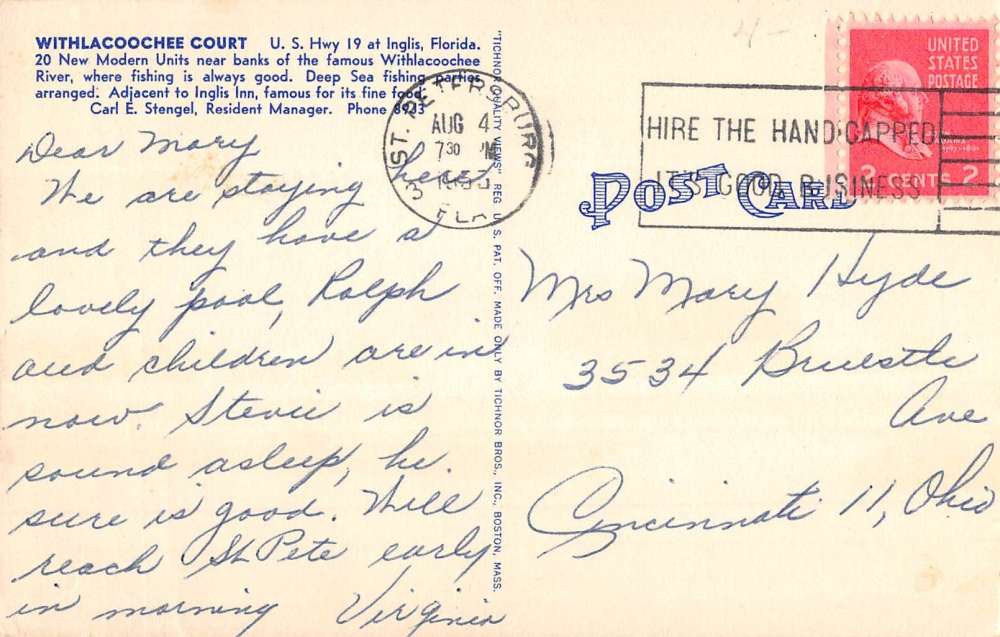 WITHLACOOCHEE COURT U. S. Hwy 19 at Inglis, Florida.
20 New Modern Units near banks of the famous Withlacoochee
River, where fishing is always good. Deep Sea fishing parties
arranged. Adjacent to Inglis Inn, famous for its fine food.
Carl E. Stengel, Resident Manager. Phone
Dear Mary
We are staying here
and they have a
lovely pool, Ralph
and children are in
now. Stevie is
sound asleep, he
sure is good. Will
reach St Pete early
in morning Virginia
"TICHNOR QUALITY VIEWS" REG. U. S. PAT. OFF. MADE ONLY BY TICHNOR BROS., INC., BOSTON, MASS.
ST. PETERSBURG
AUG 4
7 30 PM
FLA
3
HIRE THE HANDICAPPED
IT'S GOOD BUSINESS
UNITED
STATES
POSTAGE
2 CENTS 2
POST CARD
Mrs Mary Hyde
3534 Bruestle
Ave
Cincinnati 11, Ohio
4-